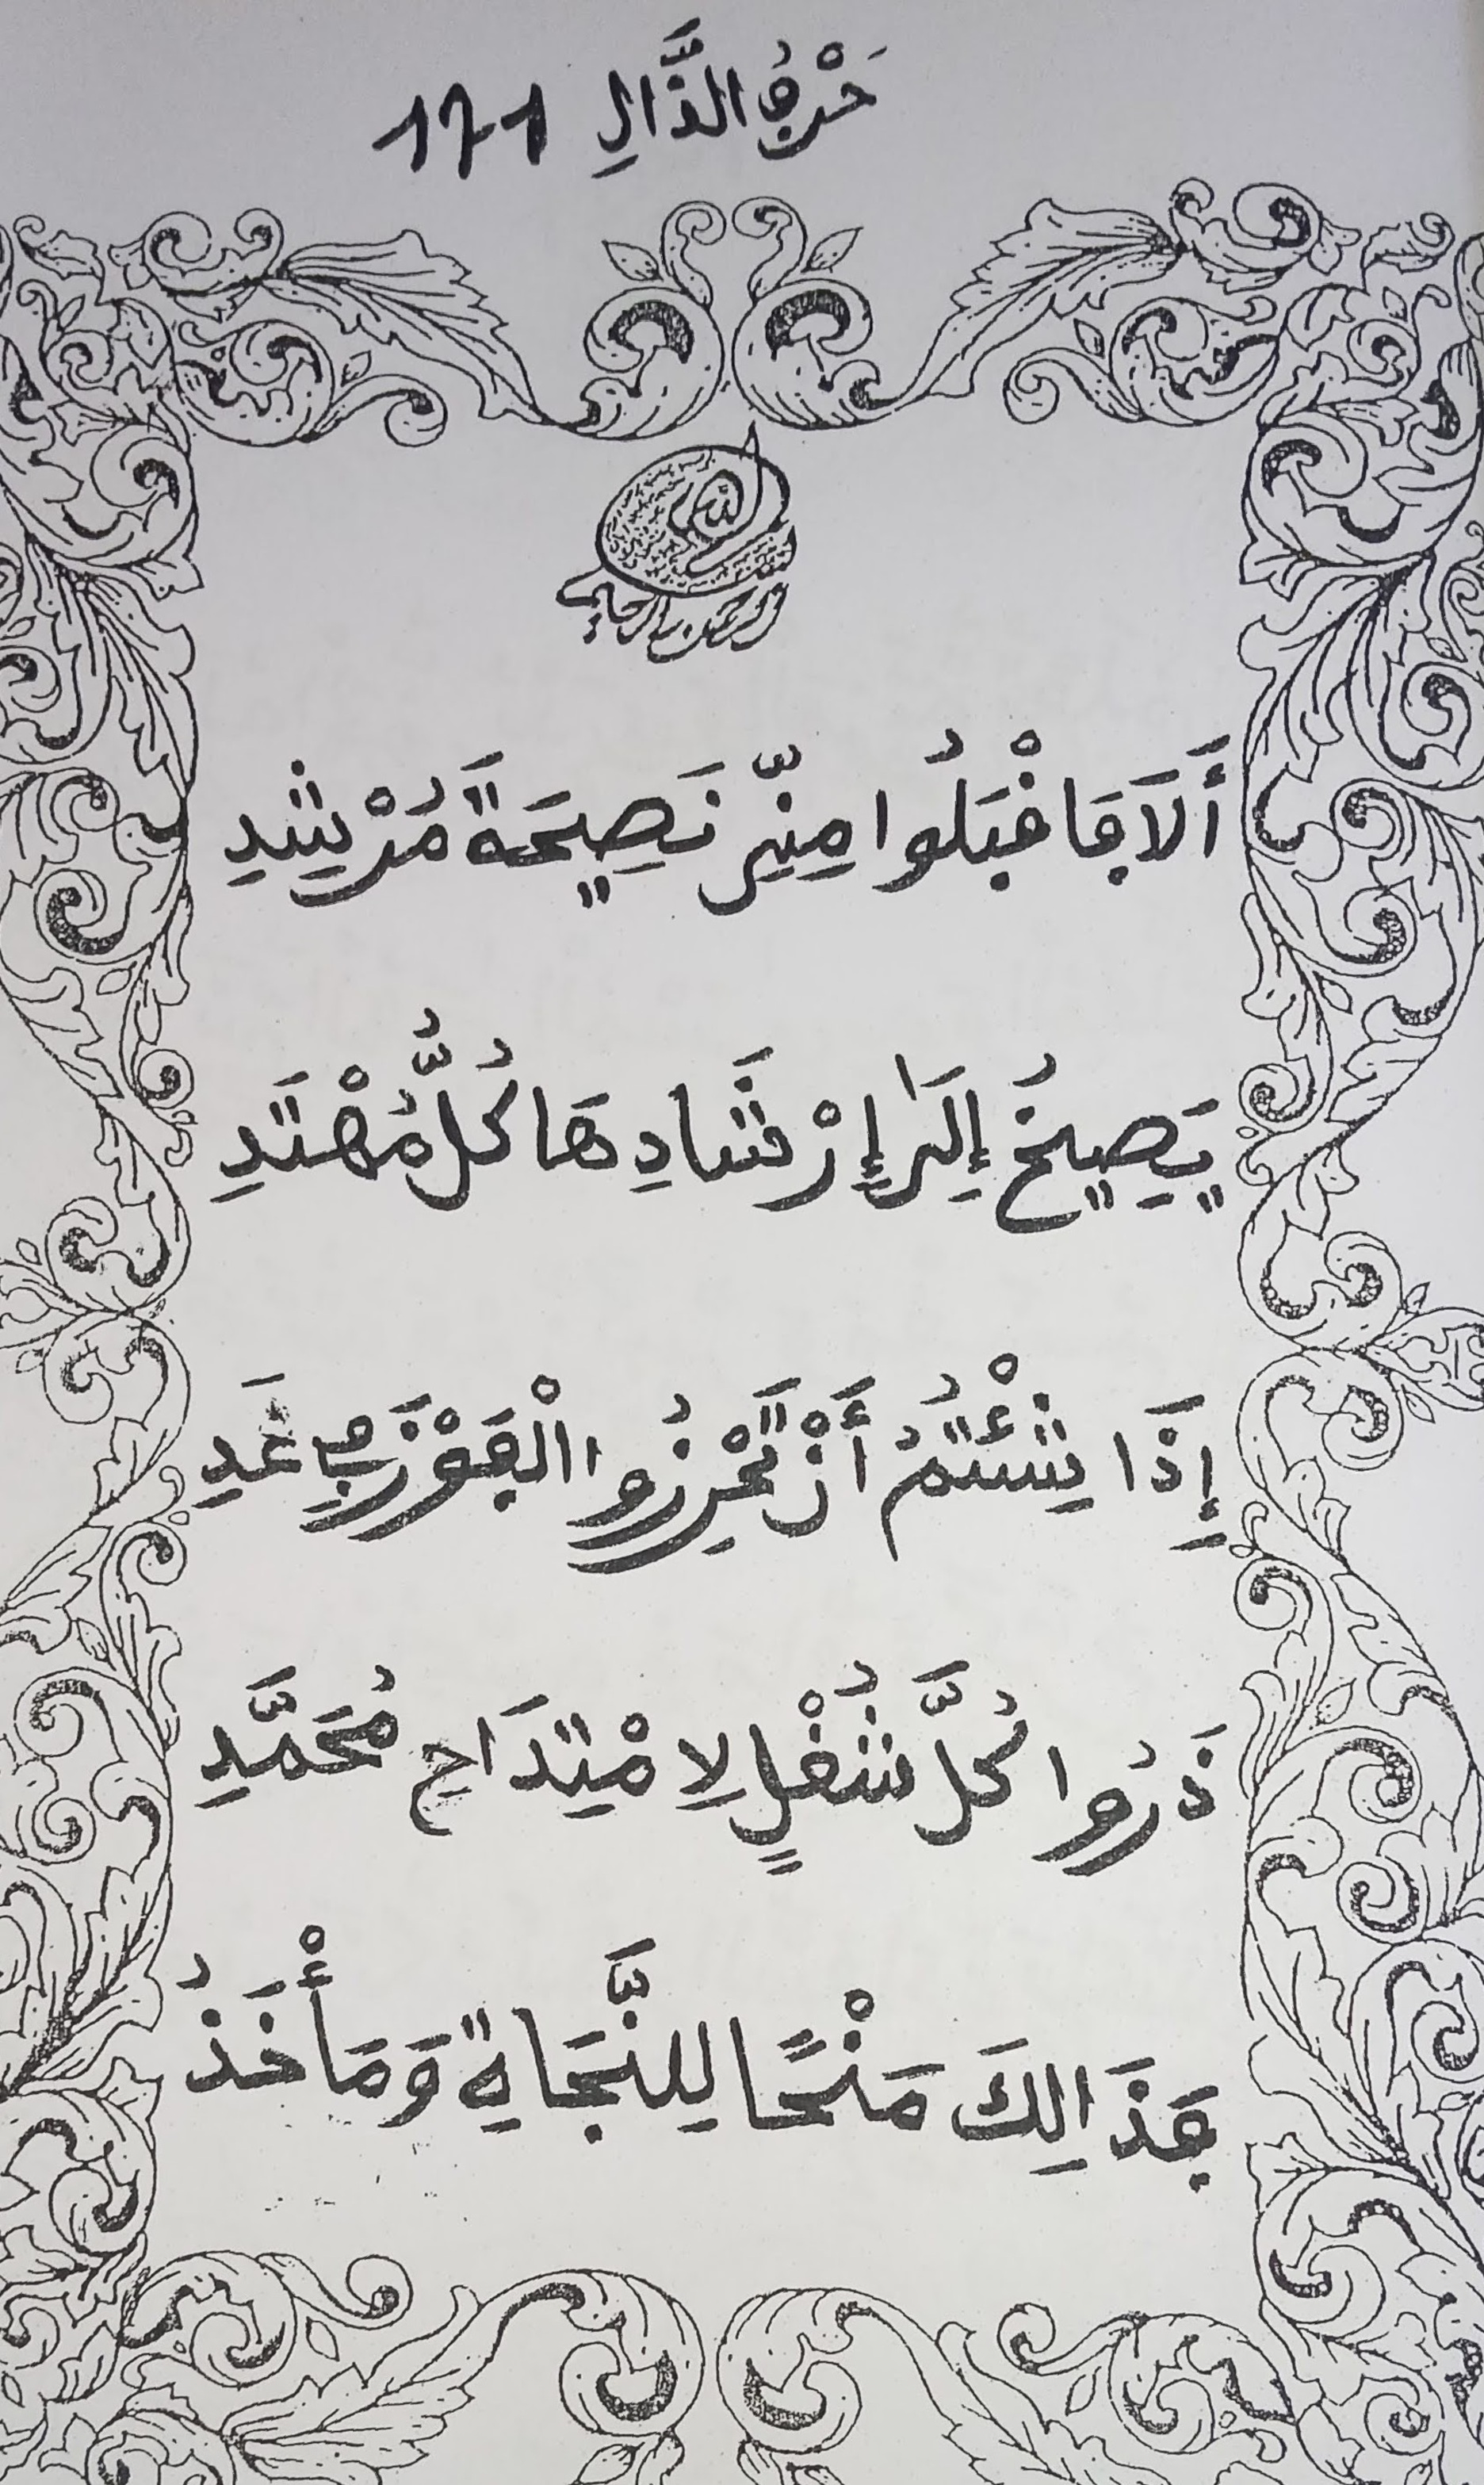 حَرْفُ الذَّالِ 171
بسم الله
الرحمن الرحيم
أَلَا فَاقْبَلُوا مِنِّي نَصِيحَةَ مُرْشِدِ
يَصِيخُ إِلَى إِرْشَادِهَا كُلُّ مُهْتَدِ
إِذَا شِئْتُمُ أَنْ تُحْرِزُوا الْفَوْزَ فِي غَدِ
ذَرُوا كُلَّ شُغْلٍ لِامْتِدَاحِ مُحَمَّدِ
فَذَالِكَ مَنْحًا لِلنَّجَاةِ وَمَأْخَذُ